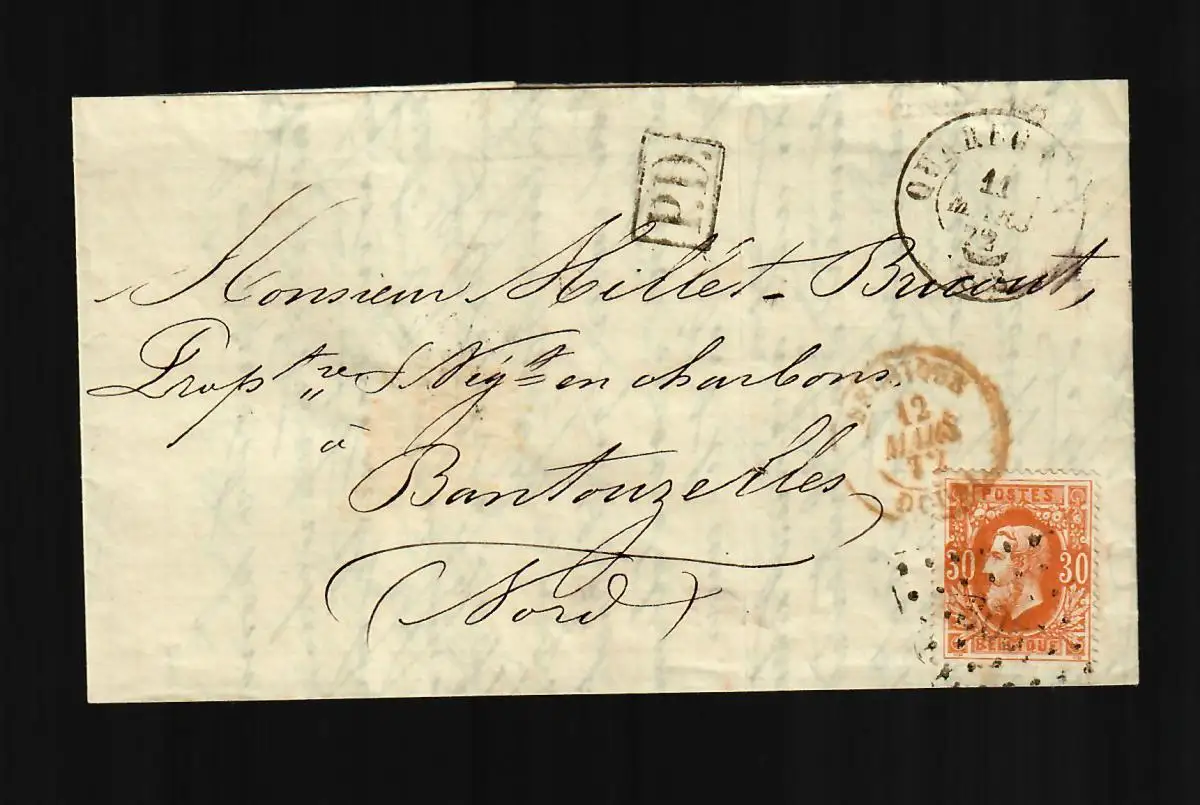 P.D.
11
MARS
Monsieur Millet-Bricout,
Prop^tre & Nég^t en charbons
à
Bantouzelles
(Nord)
12
MARS
POSTES
30 30
BELGIQUE